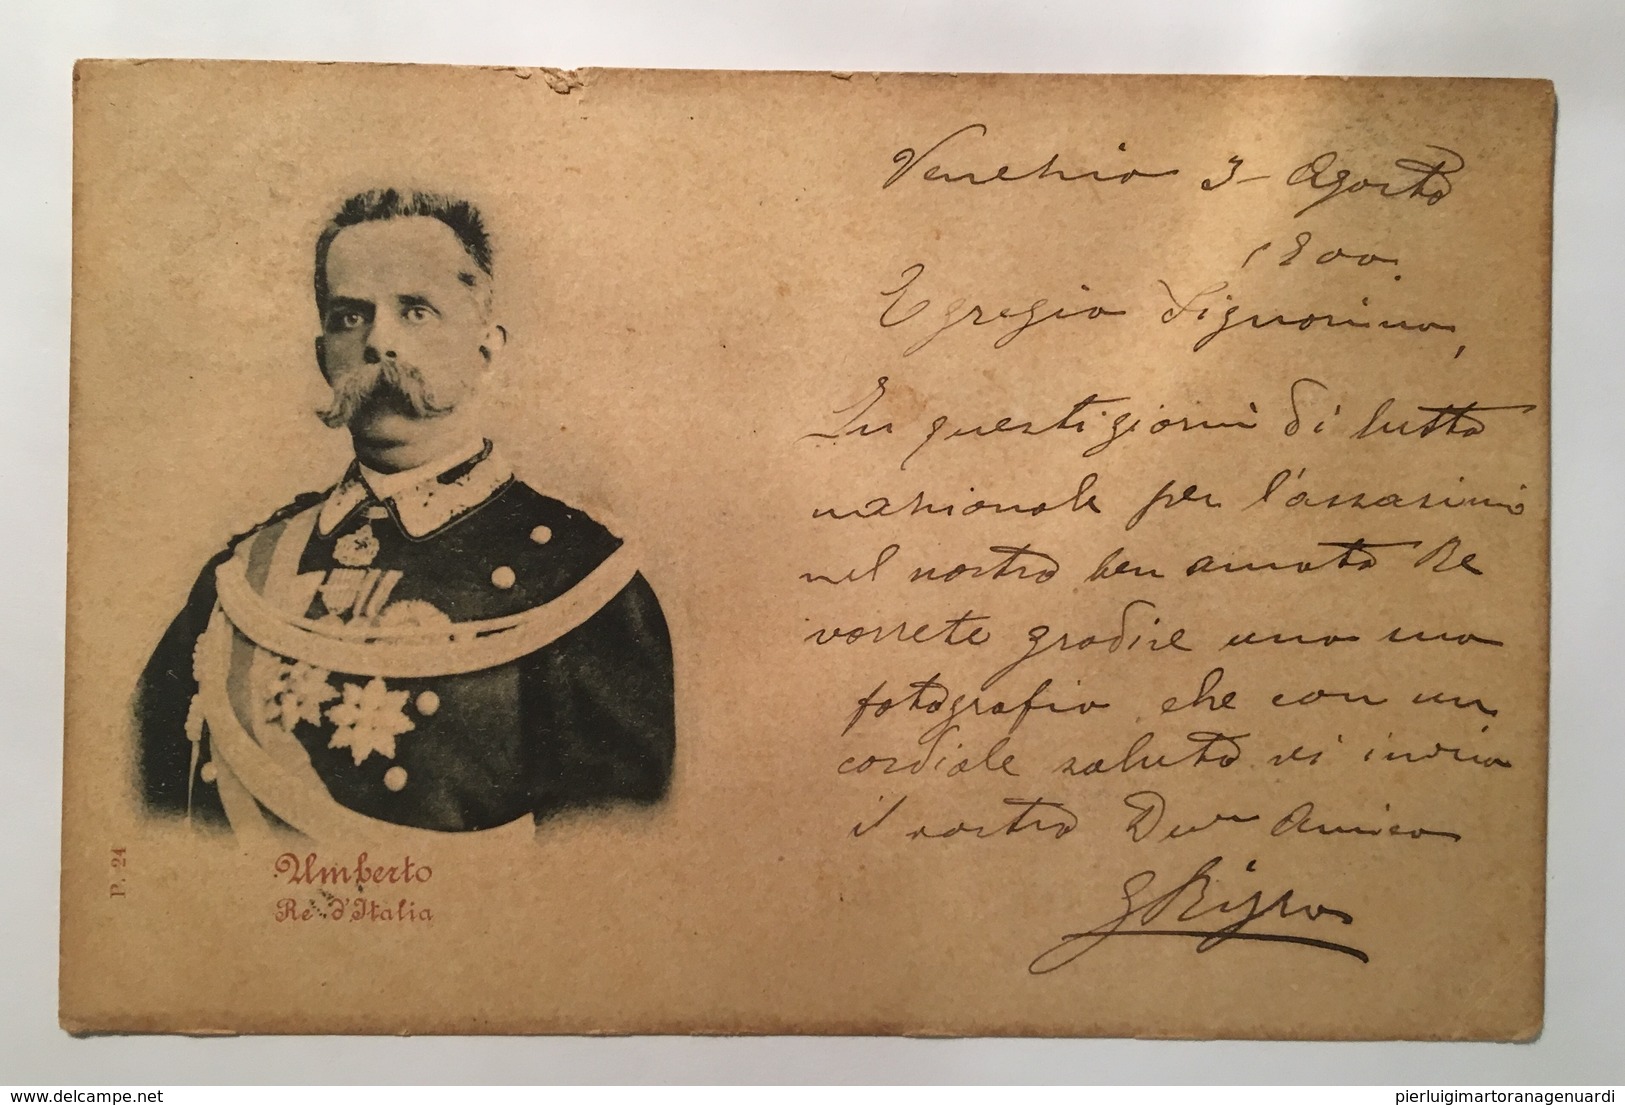 Venezia 3 - Agosto
1900.
Egregia Signorina,
In questi giorni di lutto
nazionale per l'assassinio
nel nostro ben amato Re
vorrete gradire una sua
fotografia che con un
cordiale saluto vi invia
il vostro Dev.mo Amico
Umberto
Re d'Italia
P. 24
delcampe.net
pierluigimartoranagenuardi